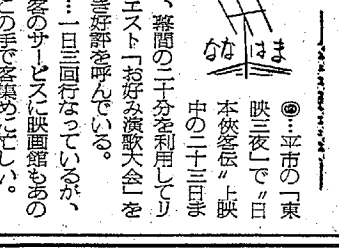 なな はま
◎…平市の「東
映三夜」で〃日
本侠客伝〃上映
中の二十三日ま
、幕間の二十分を利用してリ
エスト「お好み演歌大会」を
き好評を呼んでいる。
…一日三回行なっているが、
客のサービスに映画館もあの
この手で客集めに忙しい。